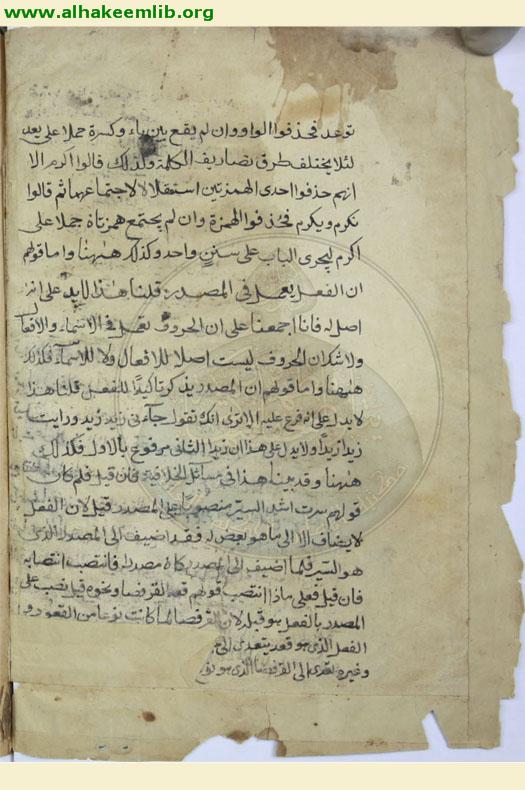 www.alhakeemlib.org
توعد فحذفوا الواو وان لم يقع بين ياء وكسرة حملا على يعد
لئلا يختلف طرق تصاريف الكلمة وكذلك قالوا اكرم الا
انهم حذفوا احدى الهمزتين استثقلا لاجتماعهما ثم قالوا
نكرم ويكرم فحذفوا الهمزة وان لم يجتمع همزتاه حملا على
اكرم ليجرى الباب على سنن واحد وكذلك ههنا واما قولهم
ان الفعل يعمل فى المصدر قلنا هذا لا يدل على انه
اصل له فانا اجمعنا على ان الحروف تعمل فى الاسماء والافعال
ولا شك ان الحروف ليست اصلا للافعال ولا للاسماء فكذلك
ههنا واما قولهم ان المصدر يذكر تاكيدا للفعل قلنا هذا
لا يدل على انه فرع عليه الا ترى انك تقول جاءنى زيد زيد ورايت
زيدا زيدا ولا يدل على هذا ان زيدا الثانى مرفوع بالاول فكذلك
ههنا وقد بينا هذا فى مسائل الخلافية فان قيل فلم كان
قولهم سرت اشد السير منصوبا على المصدر قيل لان الفعل
لا يضاف الا الى ما هو بعض له فقد اضيف الى المصدر الذى
هو السير فلما اضيف الى المصدر كان مصدرا فانتصب انتصابه
فان قيل فعلى ماذا انتصب قولهم قعد القرفصا ونحوه قيل ينصب على
المصدر بالفعل قبله لان القرفصا لما كانت نوعا من القعود و
الفعل الذى هو قعد يتعدى الى
وغيره تعدى الى القرفصا الذى هو نوع